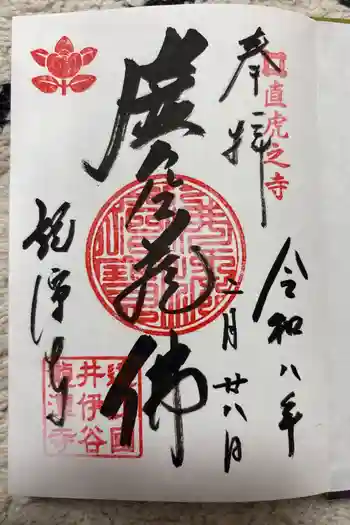 奉拝
直虎之寺
令和八年
二月廿八日
虚空蔵佛
龍潭寺
遠江國
井伊谷
龍潭寺